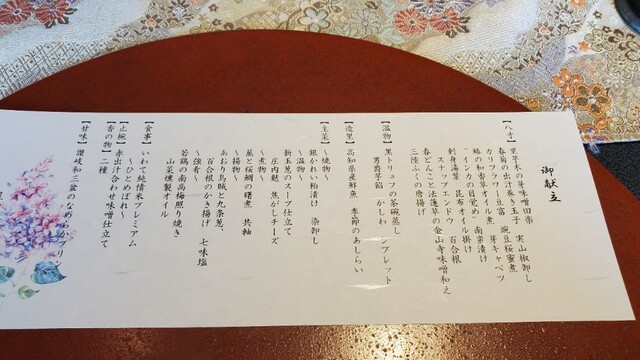 御献立
【八寸】里芋木の芽味噌田楽　実山椒卸し
春菊の出汁巻き玉子　豌豆桜蜜煮
カリフラワー豆富　芽キャベツ
鰆の和香草オイル煮　南蛮漬け
〝インカの目覚め〟
刺身湯葉　昆布オイル掛け
スナップエンドウ　百合根
春どんこと法蓮草の金山寺味噌和え
三陸ふぐの唐揚げ
【温物】黒トリュフの茶碗蒸し
男爵芋餡　かしわ　シブレット
【造里】高知県産鮮魚　季節のあしらい
【主菜】～焼物～
銀かれい粕漬け　染卸し
～温物～
新玉葱のスープ仕立て
庄内麩　焦がしチーズ
～煮物～
蕪と桜鯛の煮　共釉
～揚物～
あおり烏賊と九条葱、
百合根のかき揚げ　七味塩
～強肴～
若鶏の南高梅照り焼き
山菜燻製オイル
【食事】いわて純情米プレミアム
～ひとめぼれ～
【止椀】赤出汁合わせ味噌仕立て
【香の物】二種
【甘味】讃岐和三盆のなめらかプリン